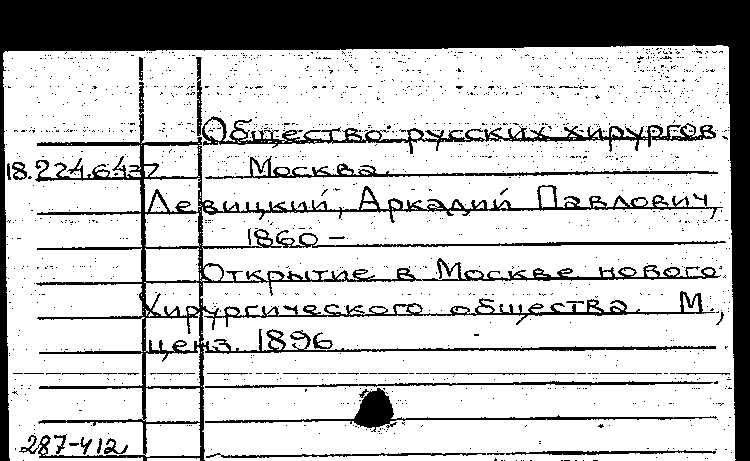 Общество русских хирургов.
18.224.6437 Москва.
Левицкий, Аркадий Павлович,
1860 –
Открытие в Москве нового
Хирургического общества. М.,
ценз. 1896
287-412